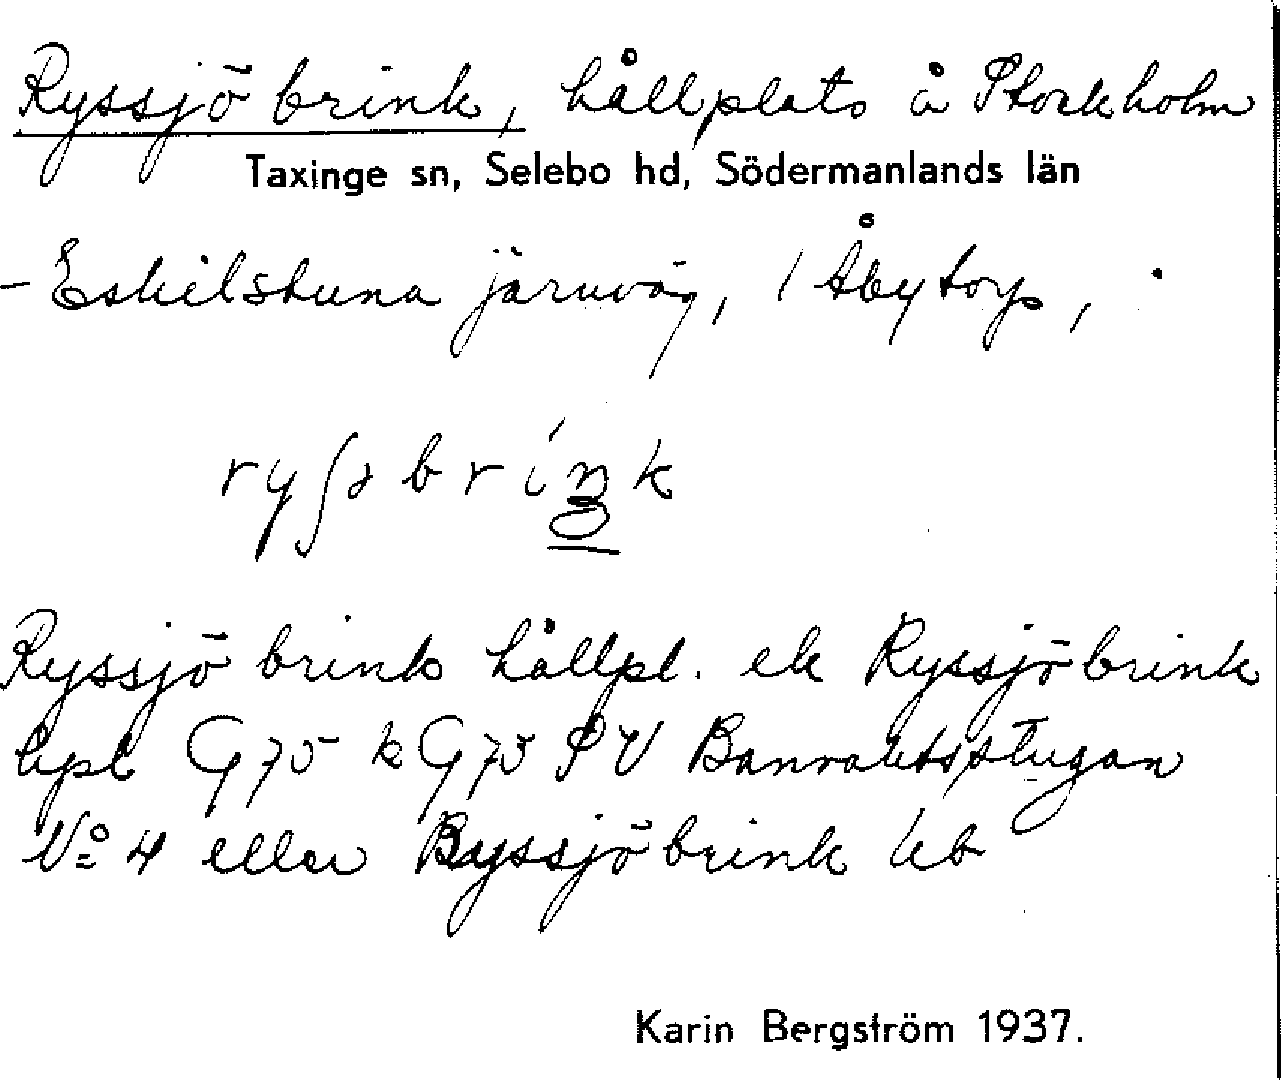 Ryssjöbrink, hållplats å Stockholm
Taxinge sn, Selebo hd, Södermanlands län
-Eskilstuna järnväg, 1 Åbytorp,
Ryssjöbrink hållpl. ek Ryssjöbrink
hpl G75 k G75 SV Banvaktsstugan
No 4 eller Ryssjöbrink hb
Karin Bergström 1937.